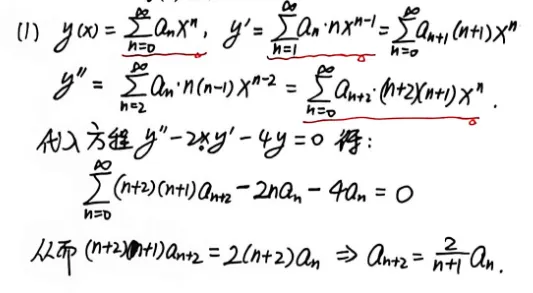 (1) y(x) = ∑_{n=0}^{∞} aₙxⁿ, y' = ∑_{n=1}^{∞} aₙ·nxⁿ⁻¹ = ∑_{n=0}^{∞} aₙ₊₁(n+1)xⁿ
y'' = ∑_{n=2}^{∞} aₙ·n(n-1)xⁿ⁻² = ∑_{n=0}^{∞} aₙ₊₂·(n+2)(n+1)xⁿ.
代入方程 y''-2xy'-4y=0 得:
∑_{n=0}^{∞} (n+2)(n+1)aₙ₊₂ - 2naₙ - 4aₙ = 0
从而 (n+2)(n+1)aₙ₊₂ = 2(n+2)aₙ ⇒ aₙ₊₂ = \frac{2}{n+1} aₙ.